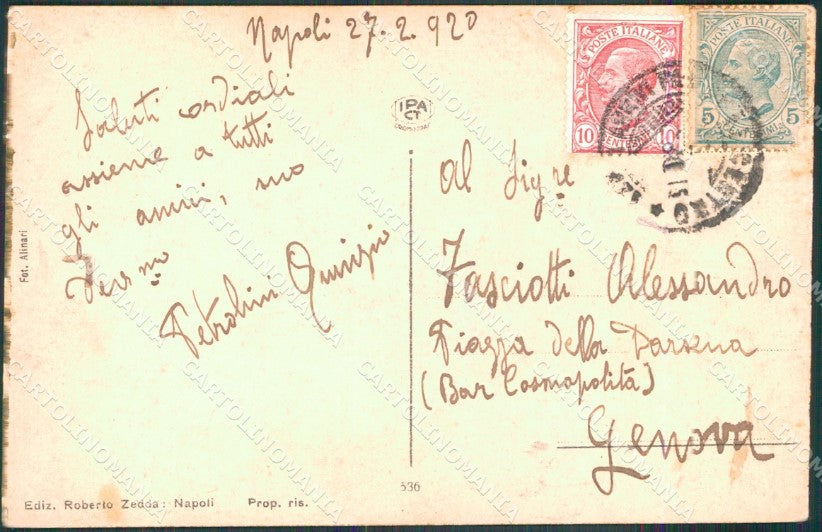 Napoli 27.2.920
Saluti cordiali
assieme a tutti
gli amici, suo
Dev.mo
Petrolini
Al Sig.re
Fasciotti Alessandro
Piazza della Darsena
(Bar Cosmopolità)
Genova
POSTE ITALIANE
10 10
POSTE ITALIANE
5 5
IPA
CT
Fot. Alinari
336
Ediz. Roberto Zedda: Napoli Prop. ris.
CARTOLINOMANIA